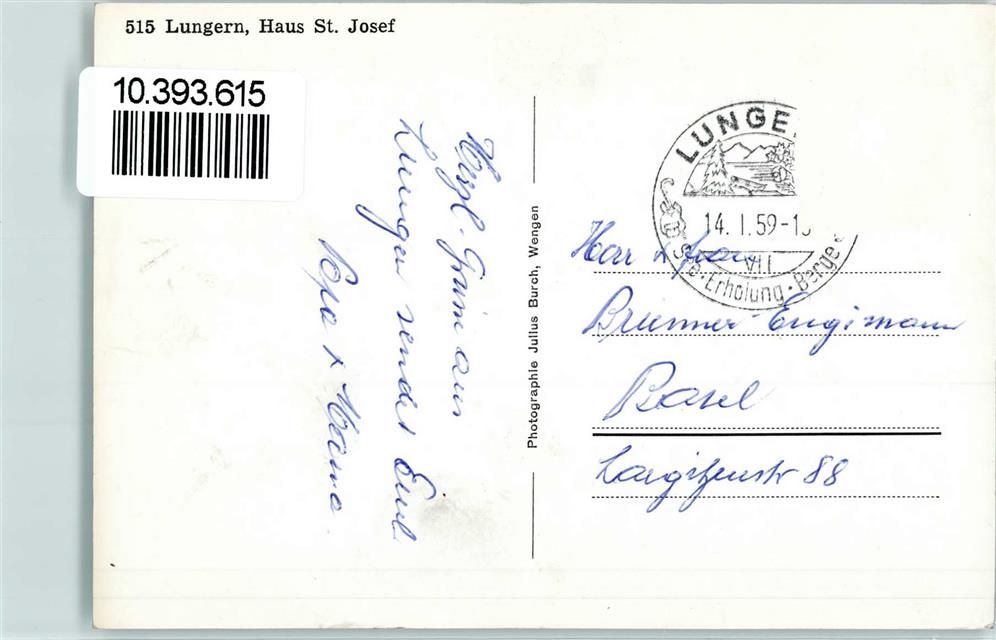 515 Lungern, Haus St. Josef
10.393.615
Herzl. Grüsse aus
Lungern sendet Euch
Papa & Mama.
Photographie Julius Burch, Wengen
LUNGE
14. I. 59-1
VII
See · Erholung · Berge
Herr & Frau
Brunner-Engimann
Basel
88